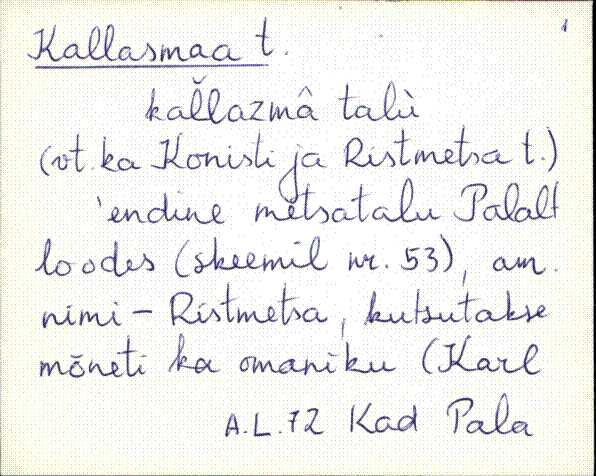 Kallasmaa t.
1
kal̆lazmâ talù
(vt. ka Konisti ja Ristmetsa t.)
'endine metsatalu Palalt
loodes (skeemil nr. 53), am.
nimi - Ristmetsa, kutsutakse
mõneti ka omaniku (Karl
A.L.72 Kad Pala